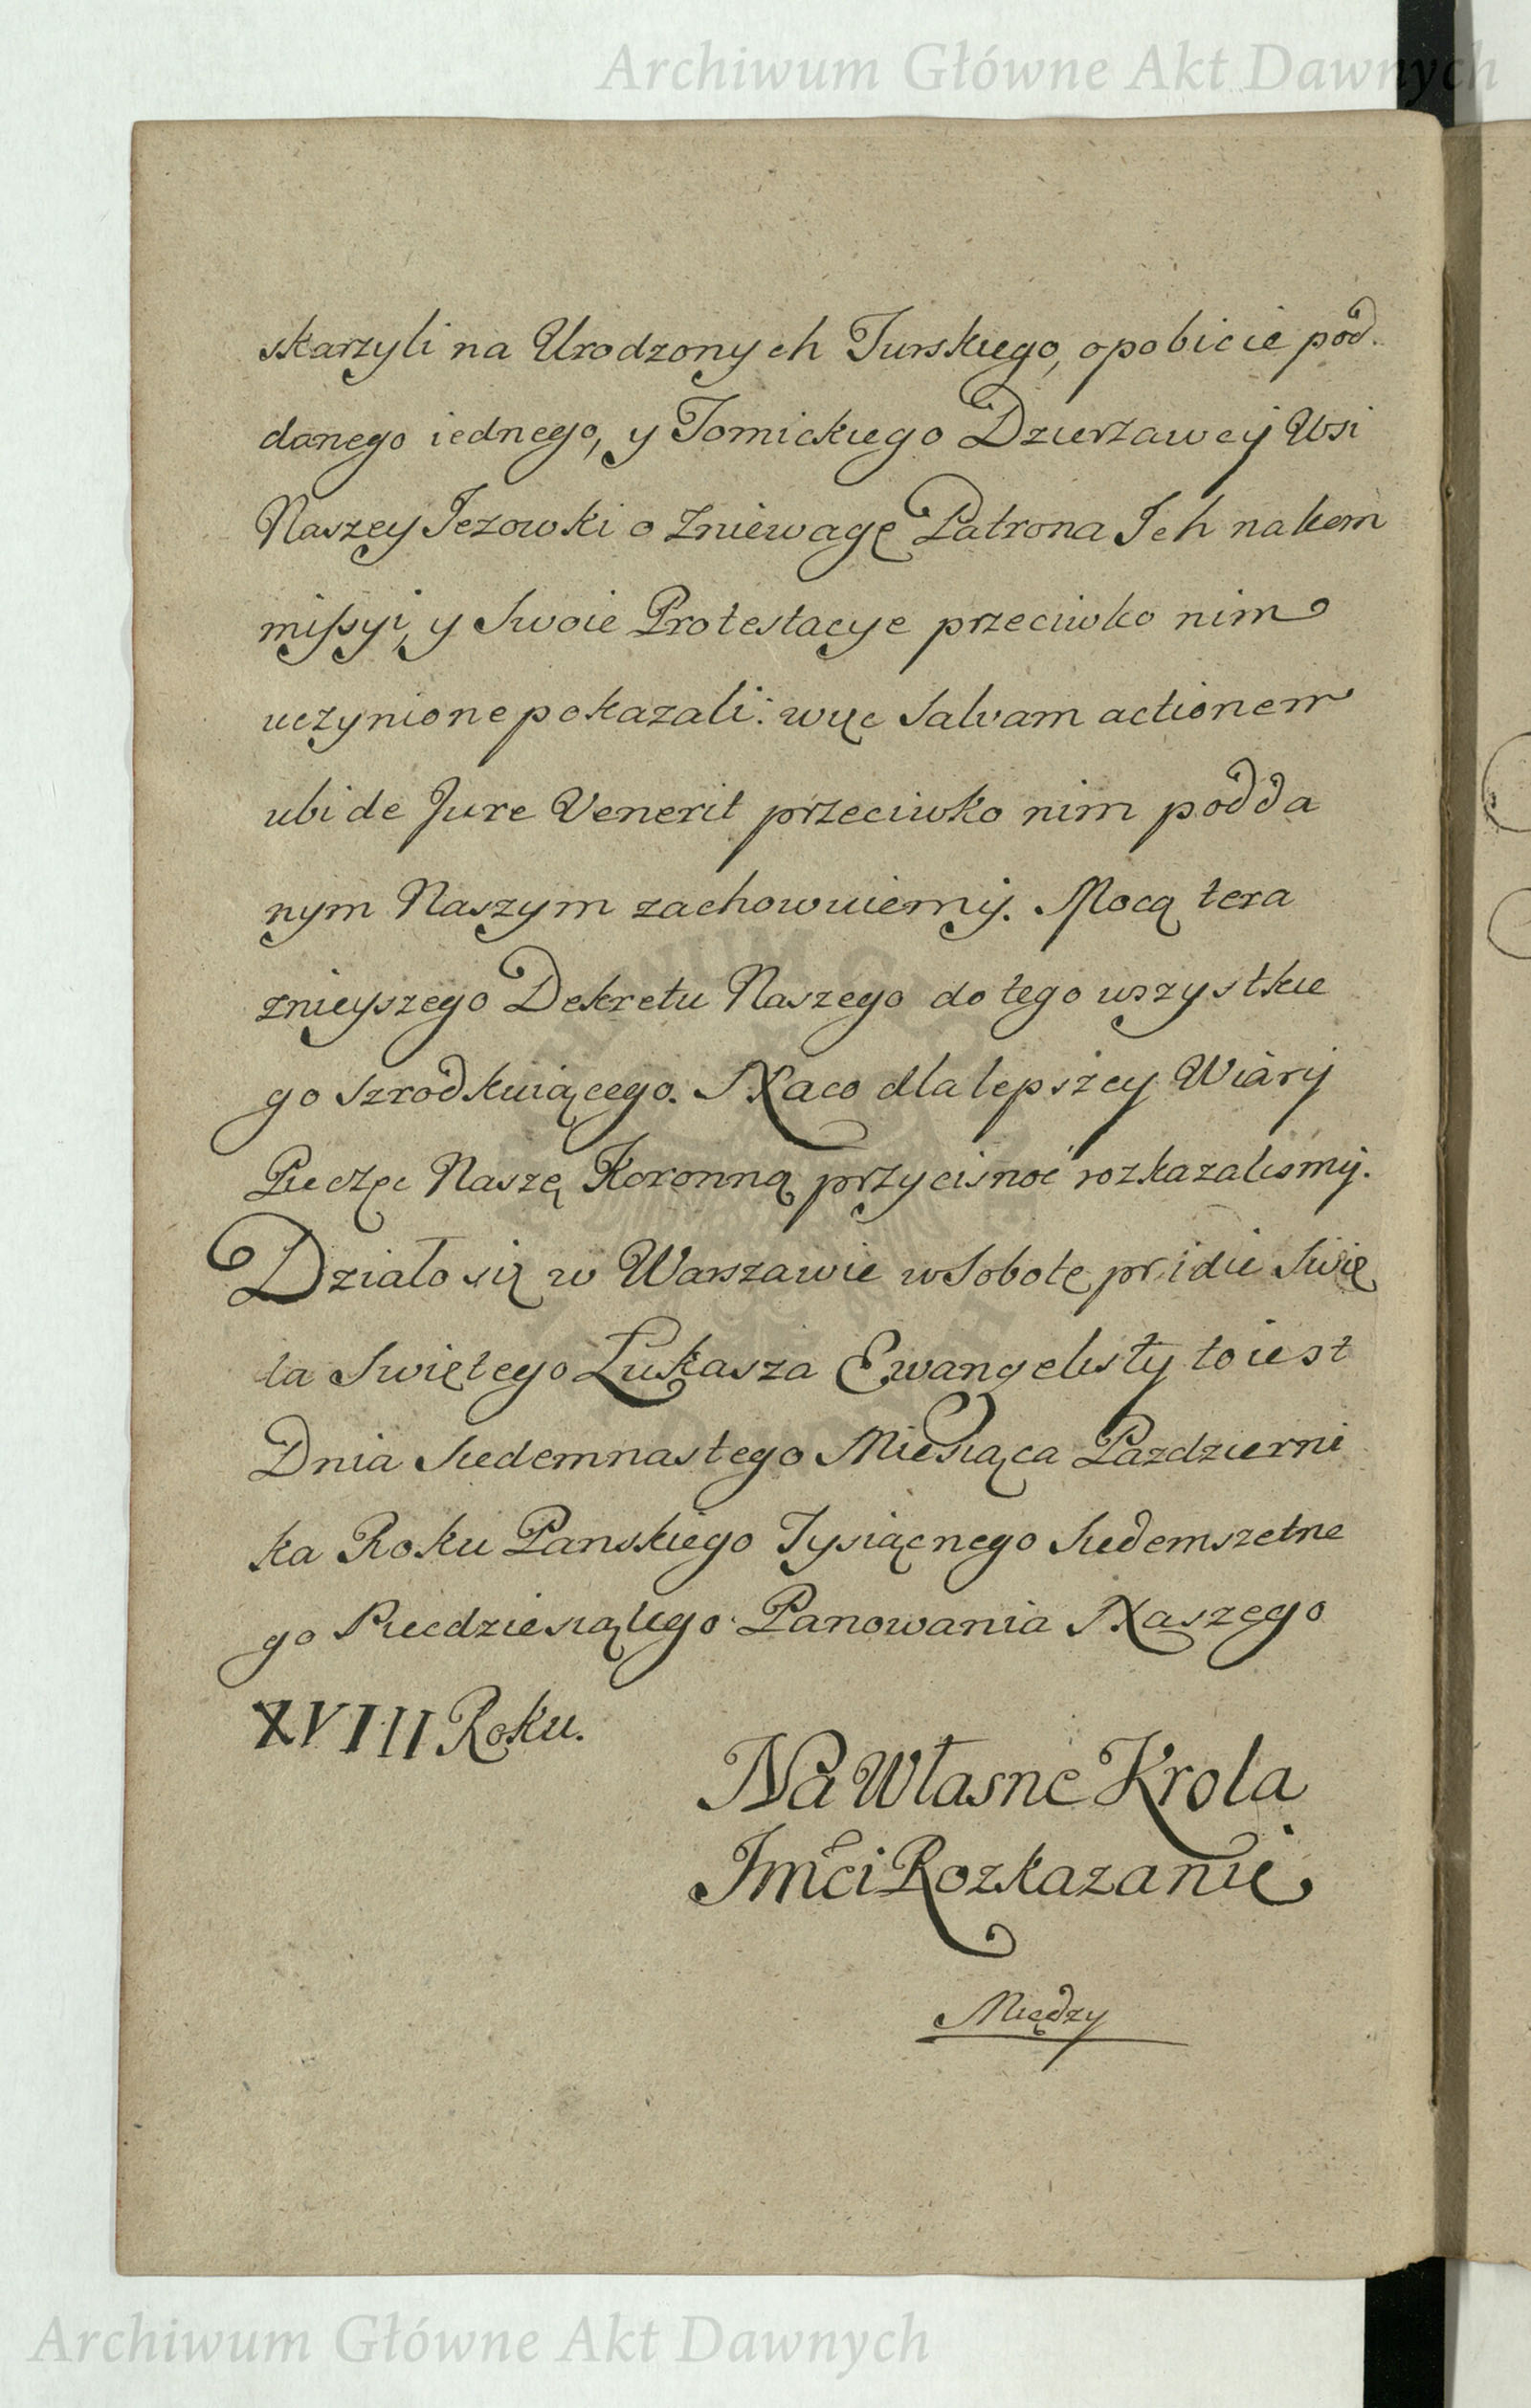 Archiwum Główne Akt Dawnych
skarzyli na Urodzonych Turskiego, o pobicie pod.
danego iednego, y Tomickiego Dzierzawcy Wsi
Naszey Jezowki o Zniewagę Patrona Ich na kom
missyi, y Swoie Protestacye przeciwko nim
uczynione pokazali: więc Salvam actionem
ubi de Jure Venerit przeciwko nim podda
nym Naszym zachowuiemy. Mocą tera
znieyszego Dekretu Naszego do tego wszystkie
go szrodkuiącego. Na co dla lepszey Wiary
Pieczęc Naszą Koronną przycisnoć rozkazalismy.
Działo się w Warszawie w Sobotę pridie Swię
ta Swiętego Łukasza Ewangelisty to iest
Dnia Siedemnastego Miesiąca Pazdzierni
ka Roku Panskiego Tysiącnego Siedemsetne
go Piędziesiątego Panowania Naszego
XVIII Roku.
Na Własne Krola
Jmci Rozkazanie
Między
Archiwum Główne Akt Dawnych